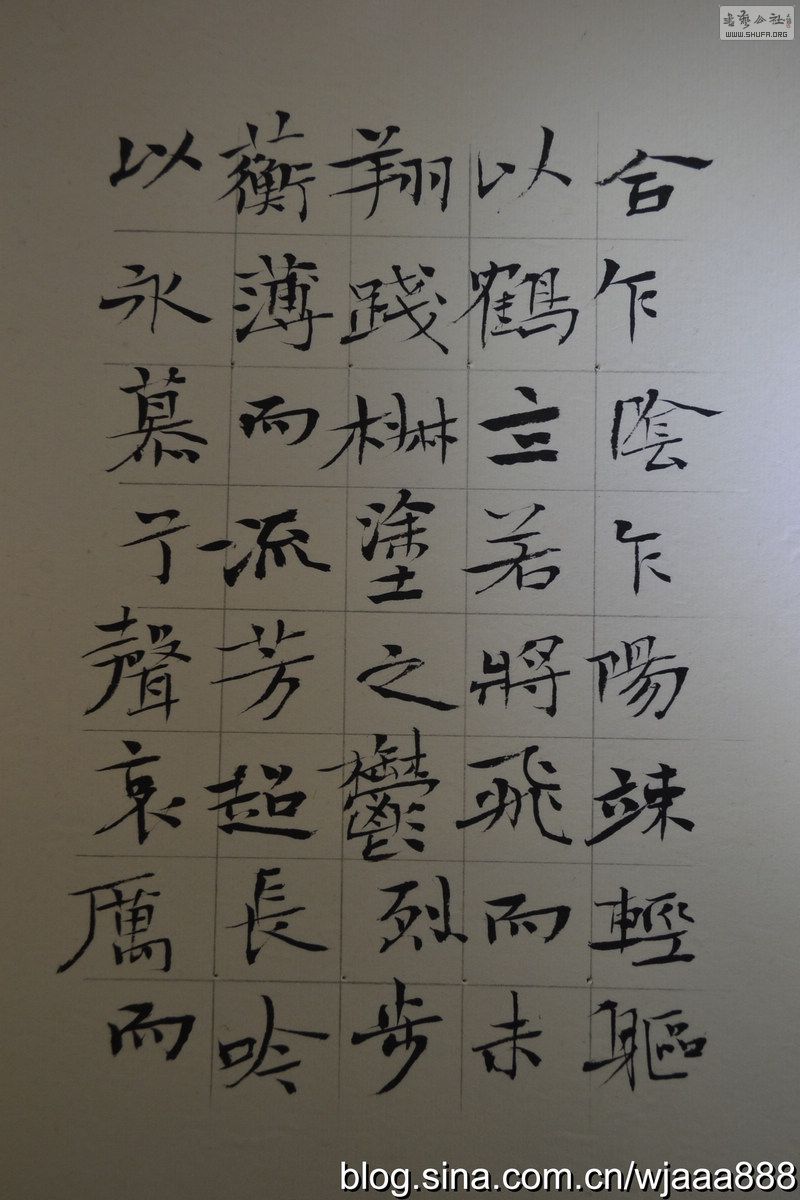 合乍陰乍陽竦輕軀
以鶴立若將飛而未
翔踐椒塗之鬱烈步
蘅薄而流芳超長吟
以永慕兮聲哀厲而
书艺公社
WWW.SHUFA.ORG
blog.sina.com.cn/wjaaa888